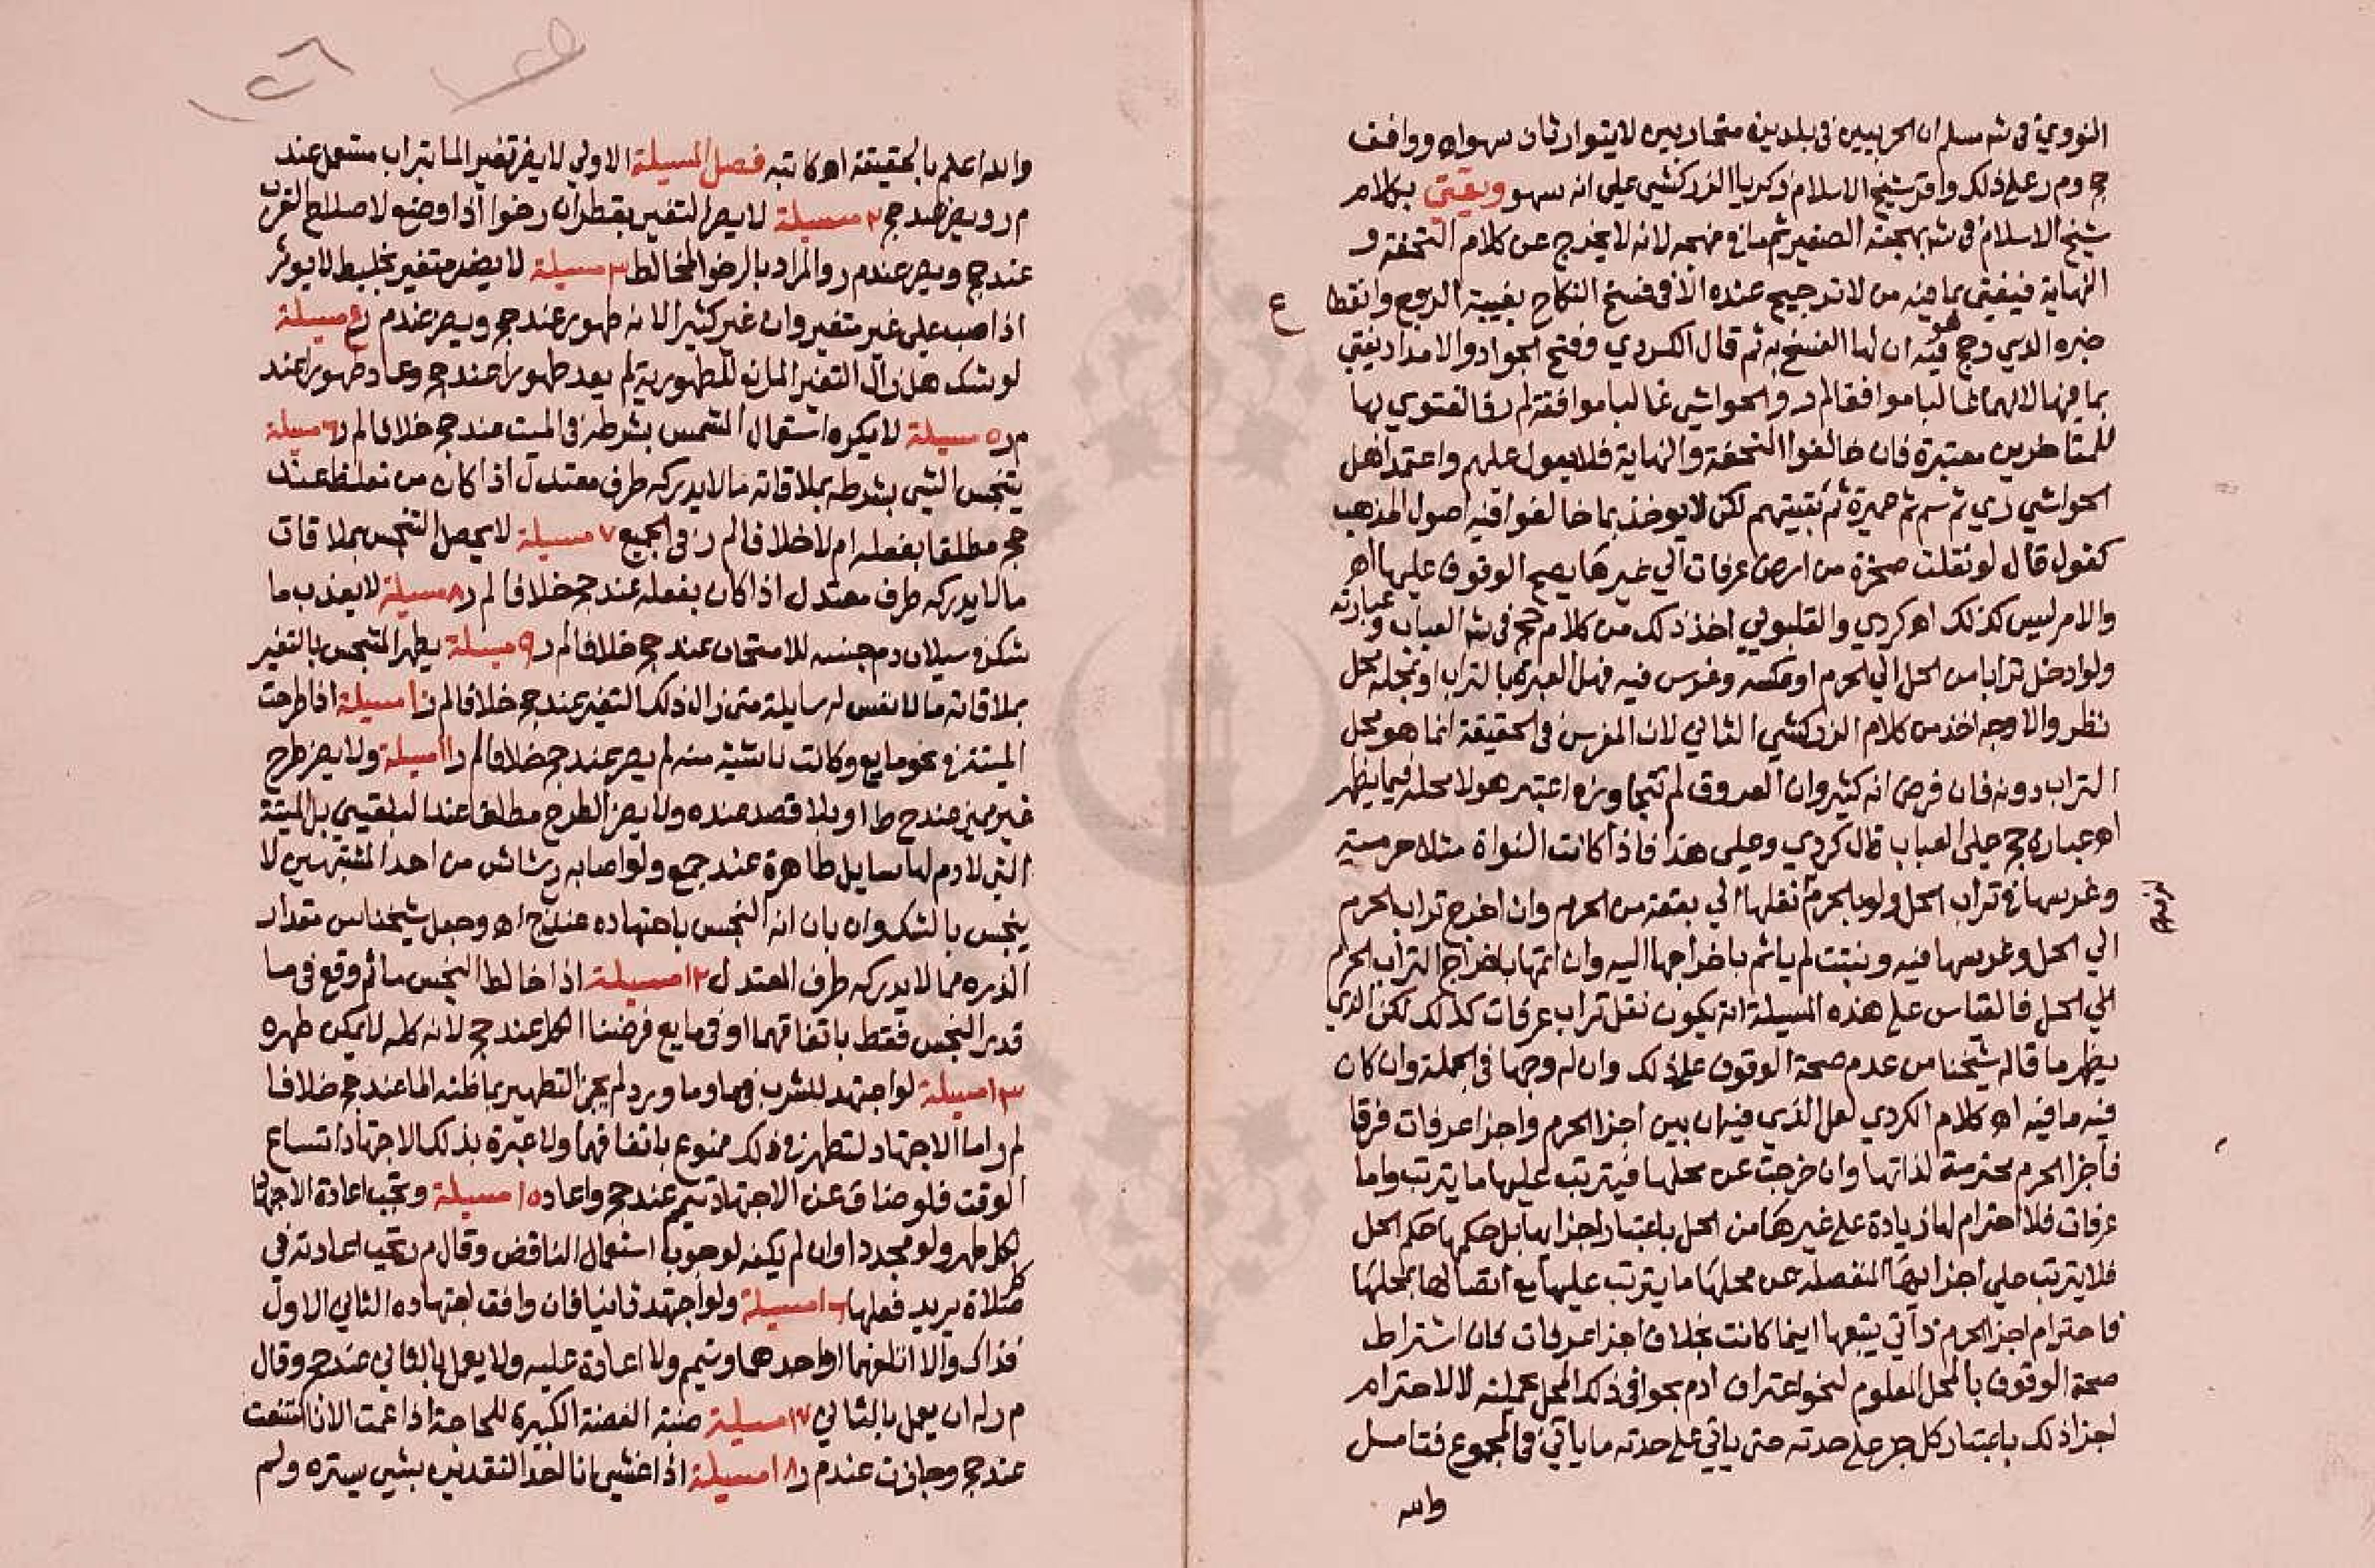 النووي في شه مسلم ان الحربيين في بلدين متحاربين لا يتوارثان سهو اه ووافق
حج وم ر على ذلك واقر شيخ الاسلام زكريا الزركشي على انه سهو ويفتي بكلام
شيخ الاسلام في شه بهجته الصغير ثم ما في منهجه لانه لا يخرج عن كلام التحفة و
النهاية فيفتي بما فيه من لا ترجيح عنده الا في فسخ النكاح بغيبة الزوج وانقطا
ع
خبره الذي رجح هو فيه ان لها الفسخ به ثم قال الكردي وفتح الجواد والامداد يفتي
بما فيها لانهما غالبا موافقا لم ر والحواشي غالبا موافقة لم ر فالفتوي بها
للمتاخرين معتبرة فان خالفوا التحفة والنهاية فلا يعول عليهم واعتمد اهل
الحواشي زي ثم سم ثم عميرة ثم بقيتهم لكن لا يوخذ بما خالفوا فيه اصول المذهب
كقول قال لو نقلت صخرة من ارض عرفات الي غيرها يصح الوقوف عليها اه
والامر ليس كذلك اه كردي والقليوبي اخذ ذلك من كلام حج في شه العباب وعبارته
ولو ادخل ترابا من الحل الي الحرم او عكسه وغرس فيه فهل العبرة بالتراب او بمحله محل
نظر والاوجه اخذ من كلام الزركشي الثاني لان المغرس في الحقيقة انما هو محل
التراب دونه فان فرض انه كثير وان العروق لم تتجاوزه اعتبر هو لا محله فيما يظهر
اه عبارة حج على العباب قال كردي وعلى هذا فاذا كانت النواة مثلا حرمية
وغرسها في تراب الحل ولو بالحرم نقلها الي بقعة من الحرم وان اخرج تراب الحرم
الي الحل وغرسها فيه ونبتت لم ياثم باخراجها اليه وان اثم باخراج التراب الحرم
الي الحل فالقياس على هذه المسيلة انه يكون نقل تراب عرفات كذلك لكن الذي
يظهر ما قاله شيخنا من عدم صحة الوقوف على ذلك وان له وجها في الجملة وان كان
فيه ما فيه اه كلام الكردي لعل الذي فيه ان بين اجزا الحرم واجزا عرفات فرقا
فاجزا الحرم محترمة لذاتها وان خرجت عن محلها فيترتب عليها ما يترتب واما
عرفات فلا احترام لها زيادة على غيرها من الحل باعتبار اجزايها بل حكمها حكم الحل
فلا يترتب على اجزايها المنفصله عن محلها ما يترتب عليها مع اتصالها بمحلها
فاحترام اجزا الحرم ذاتي يتبعها اينما كانت بخلاف اجزا عرفات فان اشتراط
صحة الوقوف بالمحل المعلوم لنحو اعتراف ادم بحوا في ذلك المحل لا لاحترام
اجزا ذلك باعتبار كل جز على حدته حتى ياتي على حدته ما ياتي في المجموع فتامل
والله
والله اعلم بالحقيقة اه كاتبه فصل المسيلة الاولي لا يضر تغير الما بتراب مستعمل عند
م ر ويضر عند حج ٢ مسيلة لا يضر التغير بقطران رخوا اذا وضع لاصلاح القرب
عند حج ويضر عند م ر والمراد بالرخو المخالط ٣ مسيلة لا يضر متغير بخليط لا يوثر
اذا صب على غير متغير وان غير كثيرا لانه طهور عند حج ويضر عند م ر ٤ مسيلة
لو شك هل زال التغير المانع للطهورية لم يعد طهورا عند حج وعاد طهورا عند
م ر ٥ مسيلة لا يكره استعمال الشمس بشرطه في الميت عند حج خلافا لم ر ٦ مسيلة
يتنجس الشي بشرطه بملاقاته ما لا يدركه طرف معتدل اذا كان من مغلظ عند
حج مطلقا بفعله ام لا خلافا لم ر في الجميع ٧ مسيلة لا يحصل التنجس بملاقات
ما لا يدركه طرف معتدل اذا كان بفعله عند حج خلافا لم ر ٨ مسيلة لا يغرز ما
شك في سيلان دم جنسه للامتحان عند حج خلافا لم ر ٩ مسيلة يطهر المتنجس بالتغير
بملاقاته ما لا نفس له سايلة متى زال ذلك التغير عند حج خلافا لم ر ١٠ مسيلة اذا طرحت
الميتة في نحو مايع وكانت ناشية منه لم يضر عند حج خلافا لم ر ١١ مسيلة ولا يضر طرح
غير مميز عند حج ط ا وبلا قصد عنده ولا يضر الطرح مطلقا عند البلقيني بل الميتة
التي لا دم لها سايل طاهرة عند جمع ولو اصابه رشاش من احد المشتبهين لا
ينجس بالشك وان بان انه النجس باجتهاده عند حج اه وجعل شيخنا س مقدار
الذره مما لا يدركه طرف المعتدل ١٢ مسيلة اذا خالط النجس ما ثم وقع في ما
قدر النجس فقط باتفاقهما او في مايع فرضنا الكل عند حج لانه كله لا يمكن طهره
١٣ مسيلة لو اجتهد للشرب في ما وما ورد لم يجز التطهير بما ظنه الما عند حج خلافا
لم ر واما الاجتهاد لتطهر في ذلك ممنوع باتفاقهما ولا عبرة بذلك الاجتهاد اتساع
الوقت فلو ضاق عن الاجتهاد تيمم عند حج واعاد ١٥ مسيلة وتجب اعادة الاجتهاد
لكل طهر ولو مجددا وان لم يكفه لوجوب استعمال الناقص وقال م ر تجب اعادته في
كل صلاة يريد فعلها ١٦ مسيلة ولو اجتهد ثانيا فان وافق اجتهاده الثاني الاول
فذاك والا اتلفهما او احدهما وتيمم ولا اعادة عليه ولا يعمل بالثاني عند حج وقال
م ر له ان يعمل بالثاني ١٧ مسيلة ضبة الفضة الكبيرة للحاجة اذا عمت الانا امتنعت
عند حج وجازت عند م ر ١٨ مسيلة اذا غشي انا احد النقدين بشي يستره ولم